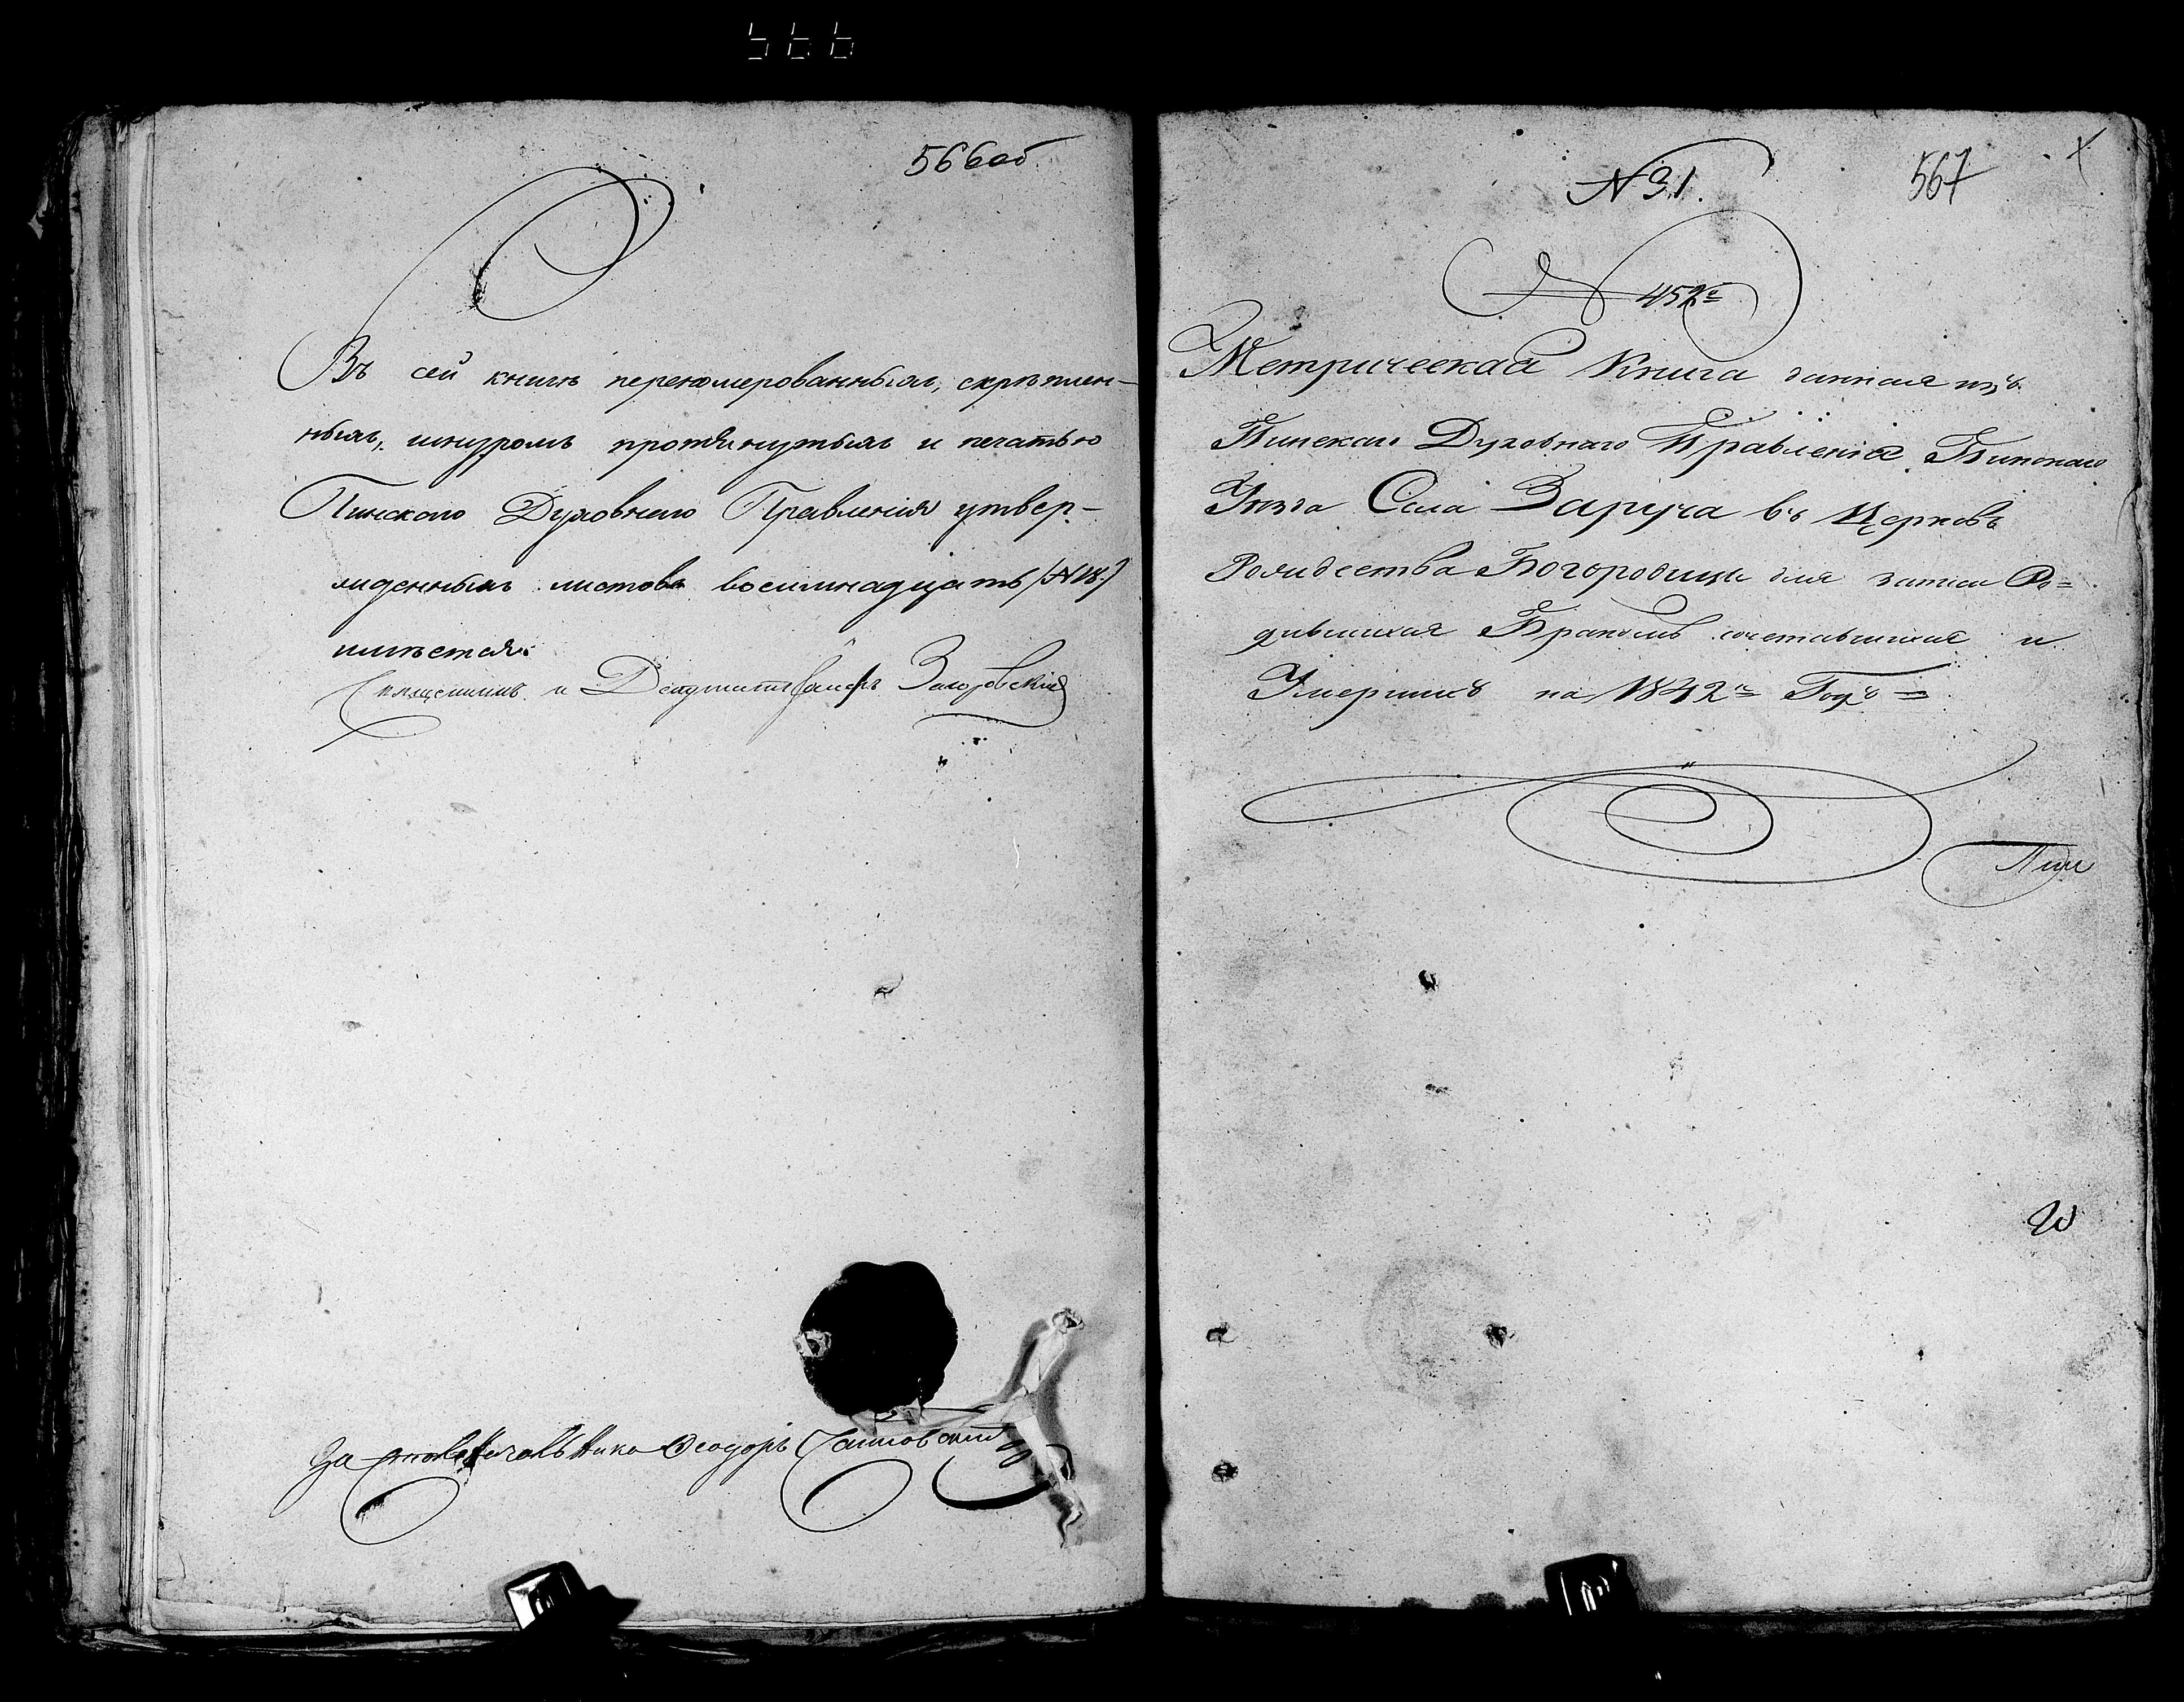 566
566об
Въ сей книгѣ перенумерованныхъ, скрѣплен-
ныхъ, шнуромъ протянутыхъ и печатью
Пинского Духовного Правленія утвер-
жденныхъ листовъ восемнадцать (№ 18.)
имѣется.
Священникъ и Депутатъ Загоровскій
За столоначальника Ѳеодоръ
№ 31.
567
№ 452й
Метрическая Книга данная изъ
Пинскаго Духовнаго Правленія Пинскаго
Уезда Села Заруча въ Церковь
Рождества Богородицы для записи Ро=
дившихся Бракомъ сочетавшихся и
Умершихъ на 1842й Годъ =
Пин